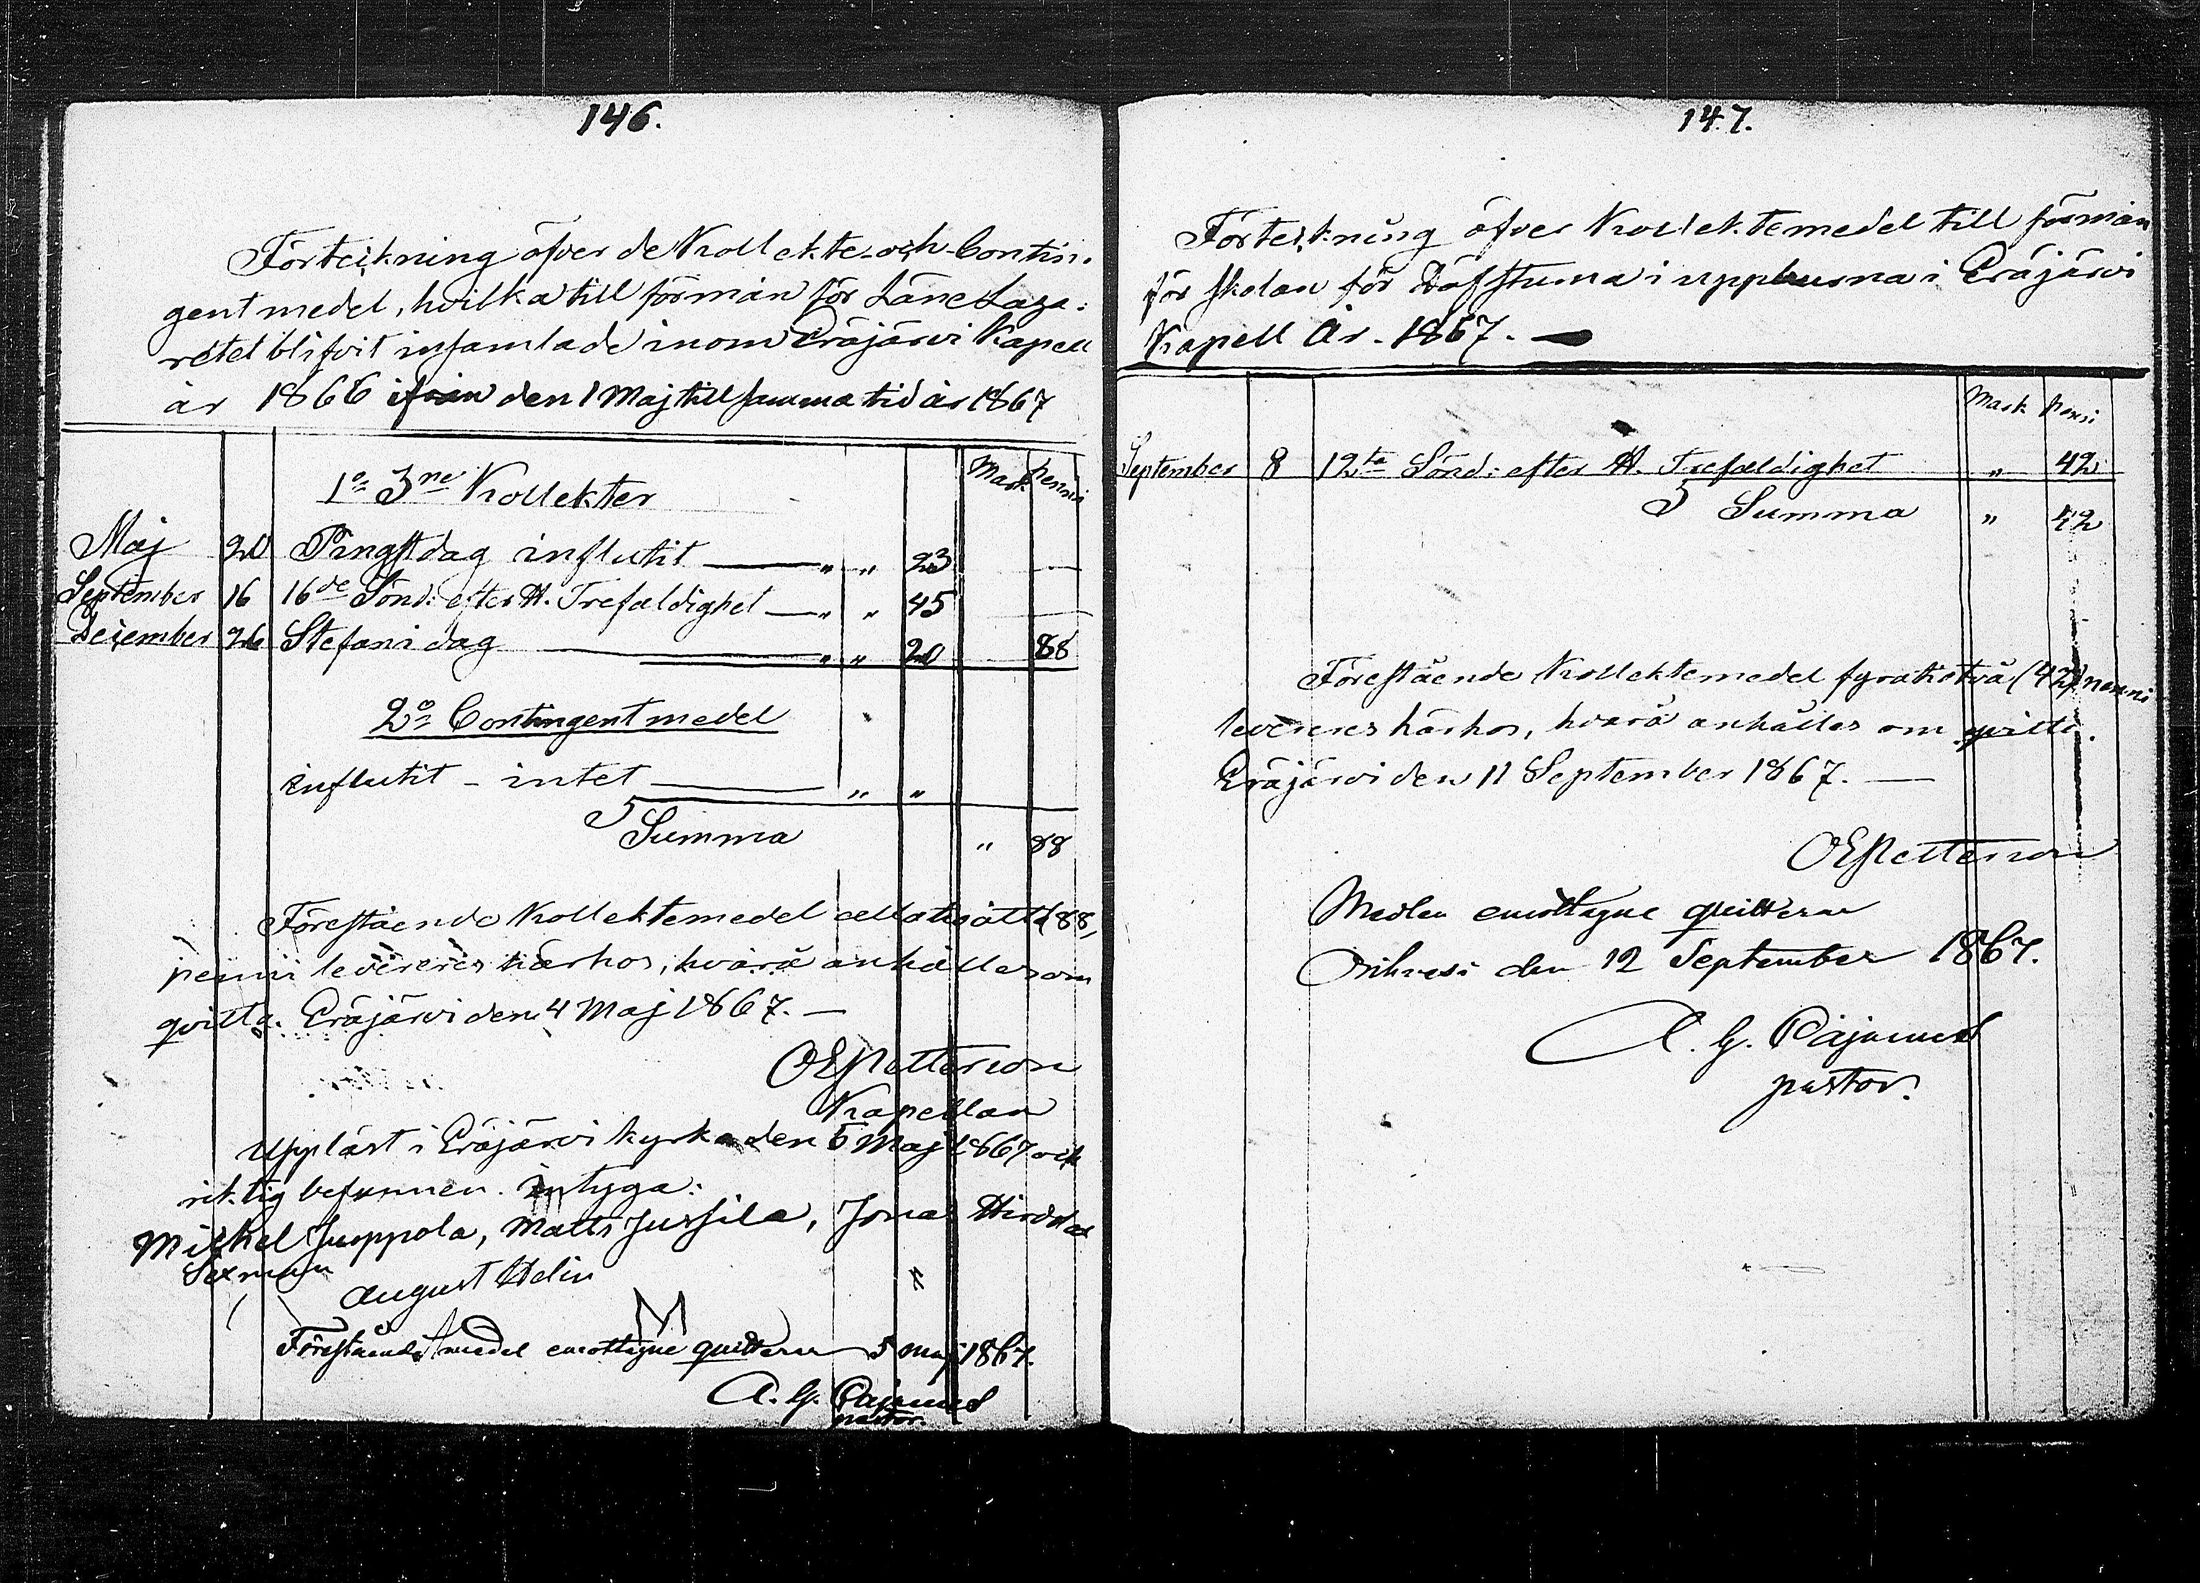 146.
Förteikning öfver de Kollekte och Contin-
gent medel, hvilka till förmån för Läne Laza-
retet blifvit insamlade inom Eräjärvi Kapell
år 1866 ifrån den 1 Maj till samma tid år 1867
Mark Penni
1o 3ne Kollekter
Maj 20 Pingstdag influtit — „ „ 23 —
September 16 16de Sönd: efter H. Trefaldighet — „ „ 45 —
December 26 Stefani dag — „ „ 20 88
2o Contingent medel
influtit - intet — „ „
Summa „ 88
Förestående Kollektemedel åttatioåtta (88)
penni levereres härhos, hvarå anhålles om
qvitto. Eräjärvi den 4 Maj 1867. —
OE Petterson
Kapellan
Uppläst i Eräjärvi kyrka den 5 Maj 1867 och
riktig befunnen. intyga:
Mickel Juoppola, Matts Jussila, Jonas
Sexman
August Helin
Förestående medel emottagne quitteras 5 maj 1867.
A. G. Pajunen
pastor.
147.
Förteikning öfver Kollektemedel till förmån
för skolan för Döfstuma i uppburna i Eräjärvi
Kapell År. 1867. —
Mark Penni
September 8 12te Sönd: efter H. Trefaldighet „ 42
Summa „ 42
Förestående Kollektemedel fyratiotvå (42) penni
levereres härhos, hvarå anhålles om qvitto.
Eräjärvi den 11 September 1867. —
OE Petterson
Medlen emottagne quitteras
Orihvesi den 12 September 1867.
A. G. Pajunen
pastor.